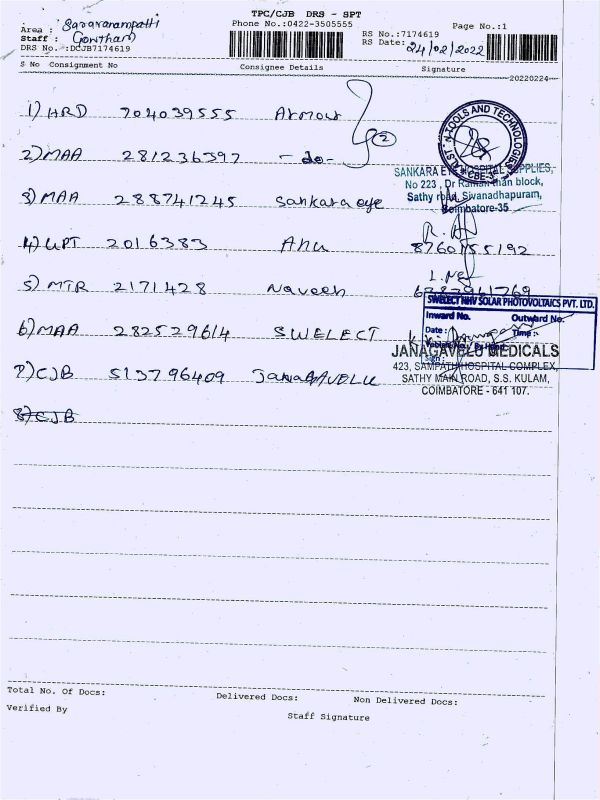 TPC/CJB DRS - SPT
Area : Saravanampatti
Phone No.:0422-3505555
Page No.:1
Staff : Gowtham
RS No.:7174619
DRS No. :DCJB7174619
RS Date: 24/02/2022
S No Consignment No Consignee Details Signature
20220224
1) HRD 704039555 Armour
2) MAA 281236397 - do - 2
N-TOOLS AND TECHNOLOGIES
CBE-35
SANKARA EYE HOSPITAL SUPPLIES,
No 223, Dr block,
Sathy road, Sivanadhapuram,
Coimbatore-35
3) MAA 288741245 Sankara eye
4) UPT 2016383 Anu
5) MTR 2171428 Naveen
SWELECT NHV SOLAR PHOTOVOLTAICS PVT. LTD.
Inward No. Outward No.
Date : Time :
Sign :
6) MAA 282529614 SWELECT
JANAGAVELU MEDICALS
423, SAMPATH HOSPITAL COMPLEX,
SATHY MAIN ROAD, S.S. KULAM,
COIMBATORE - 641 107.
7) CJB 513796409 JANAGAVELU
8) CJB
Total No. Of Docs: Delivered Docs: Non Delivered Docs:
Verified By Staff Signature